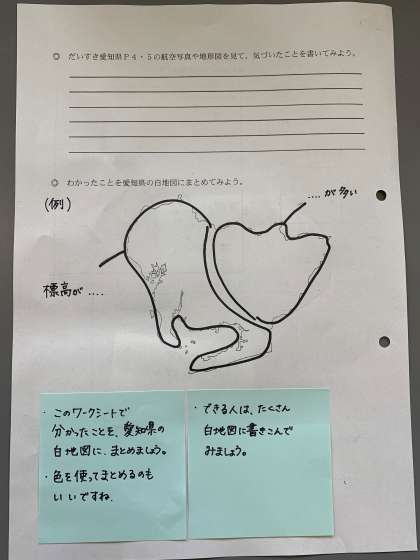 ◎ だいすき愛知県P4・5の航空写真や地形図を見て、気づいたことを書いてみよう。
◎ わかったことを愛知県の白地図にまとめてみよう。
(例)
....が多い
標高が....
・このワークシートで
分かったことを、愛知県の
白地図に、まとめましょう。
・色を使ってまとめるのも
いいですね。
・できる人は、たくさん
白地図に書きこんで
みましょう。